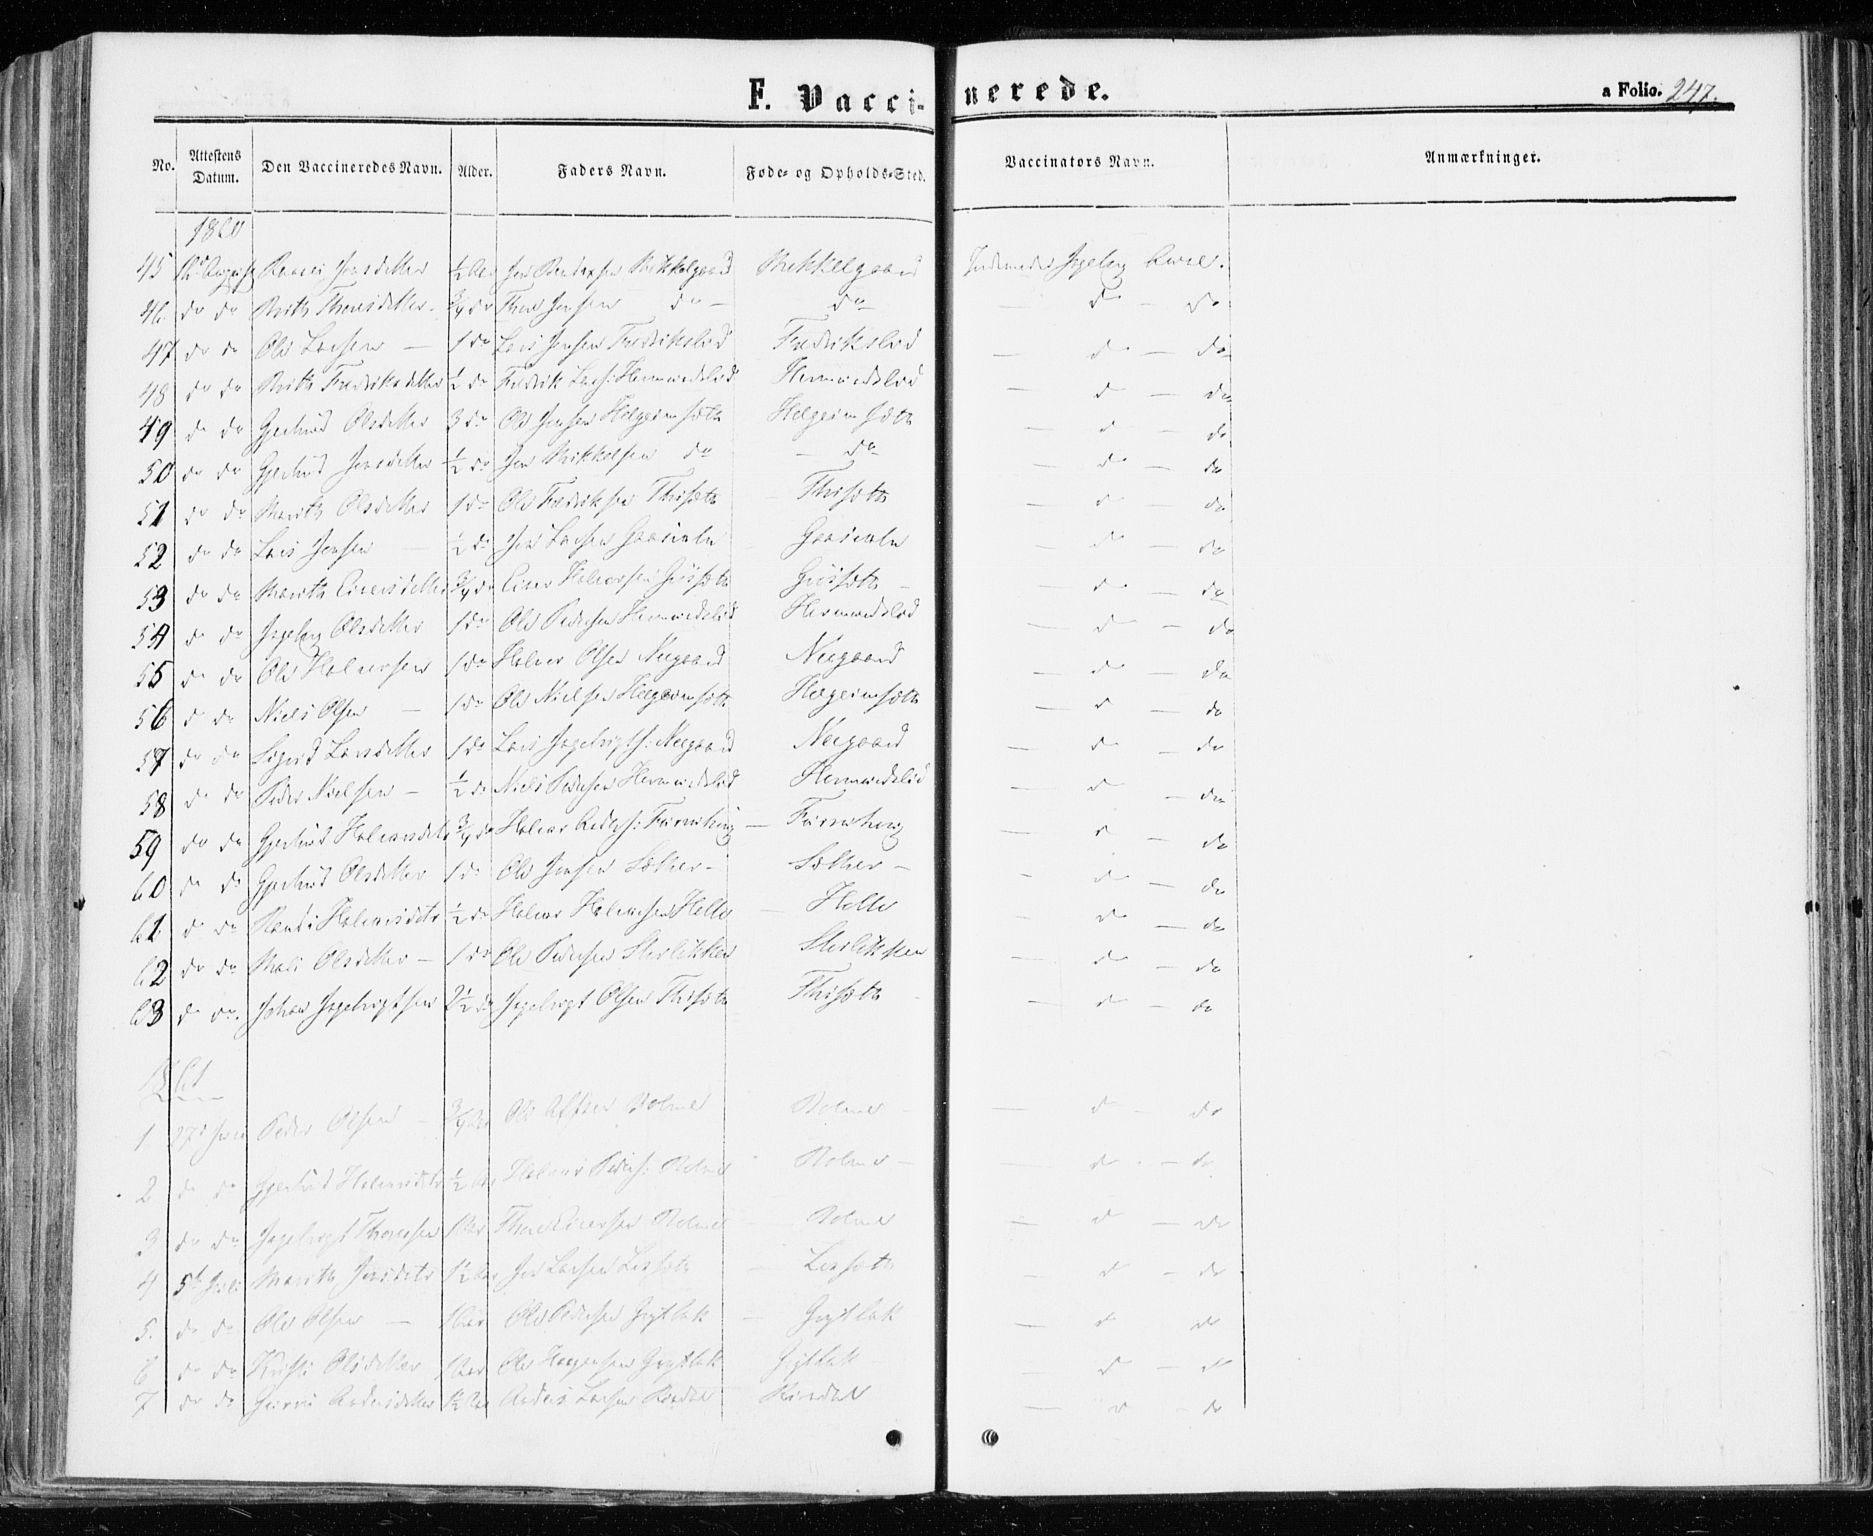 F. Vaccinerede.
a Folio. 247.
No. Attestens Datum. Den Vaccineredes Navn. Alder. Faders Navn. Føde- og Opholds-Sted. Vaccinators Navn. Anmærkninger.
1860
45 August Jensdatter 1/2 Aar Mikkelgaard Mikkelgaard Jordemoder Ingeborg
46 do do Brith Thoresdatter 3/4 do Thore Jensen do do do do
47 do do Ole Larsen 1 do Lars Jensen Fredrikslid Fredrikslid do do
48 do do Brith Fredriksdatter 1/2 do Fredrik Lars: Hermundslid Hermundslid do do
49 do do Gjertrud Olsdatter 3 do Ole Jensen Helgeimsæth Helgeimsæth do do
50 do do Gjertrud Jensdatter 1/2 do Jens Mikkelsen do do do do
51 do do Marith Olsdatter 1 do Ole Fredriksen Thisæth Thisæth do do
52 do do Lars Jensen 1/2 do Jens Larsen do do
53 do do Marith Eiversdatter 3/4 do Eiver Halvorsen do do
54 do do Ingeborg Olsdatter 1 do Ole Pedersen Hermundslid Hermundslid do do
55 do do Ole Halvorsen 1 do Halvor Olsen Neegaard Neegaard do do
56 do do Niels Olsen 1 do Ole Nielsen Helgeimsæth Helgeimsæth do do
57 do do Sigrid Larsdatter 1 do Lars Ingebrigts: Neegaard Neegaard do do
58 do do Peder Nielsen 1/2 do Niels Pedersen Hermundslid Hermundslid do do
59 do do Gjertrud Halvorsdatr 3/4 do Halvor do do
60 do do Gjertrud Olsdatter 1 do Ole Jensen Sæther Sæther do do
61 do do Randi Halvorsdatr 1/2 do Halvor Halvorsen Helle Helle do do
62 do do Mali Olsdatter 1 do Ole Pedersen do do
63 do do Johan Ingebrigtsen 2 1/2 do Ingebrigt Olsen Thisæth Thisæth do do
1861
1 27d Peder Olsen 3/4 Aar Ole Bolme Bolme do do
2 do do Gjertrud Halvorsdatr 1/2 Aar Halvor Peders: Bolme Bolme do do
3 do do Ingebrigt Thoresen 1 Aar Thore Eiversen Bolme Bolme do do
4 5te Juli Marith Jensdatr 1 1/2 Aar Jens Larsen do do
5. do do Ole Olsen 1 Aar Ole Pedersen Grytbak Grytbak do do
6 do do Kristi Olsdatter 1 Aar Ole Haagensen Grytbak Grytbak do do
7 do do Andersdatter 1/2 Aar Anders Larsen Rindal Rindal do do